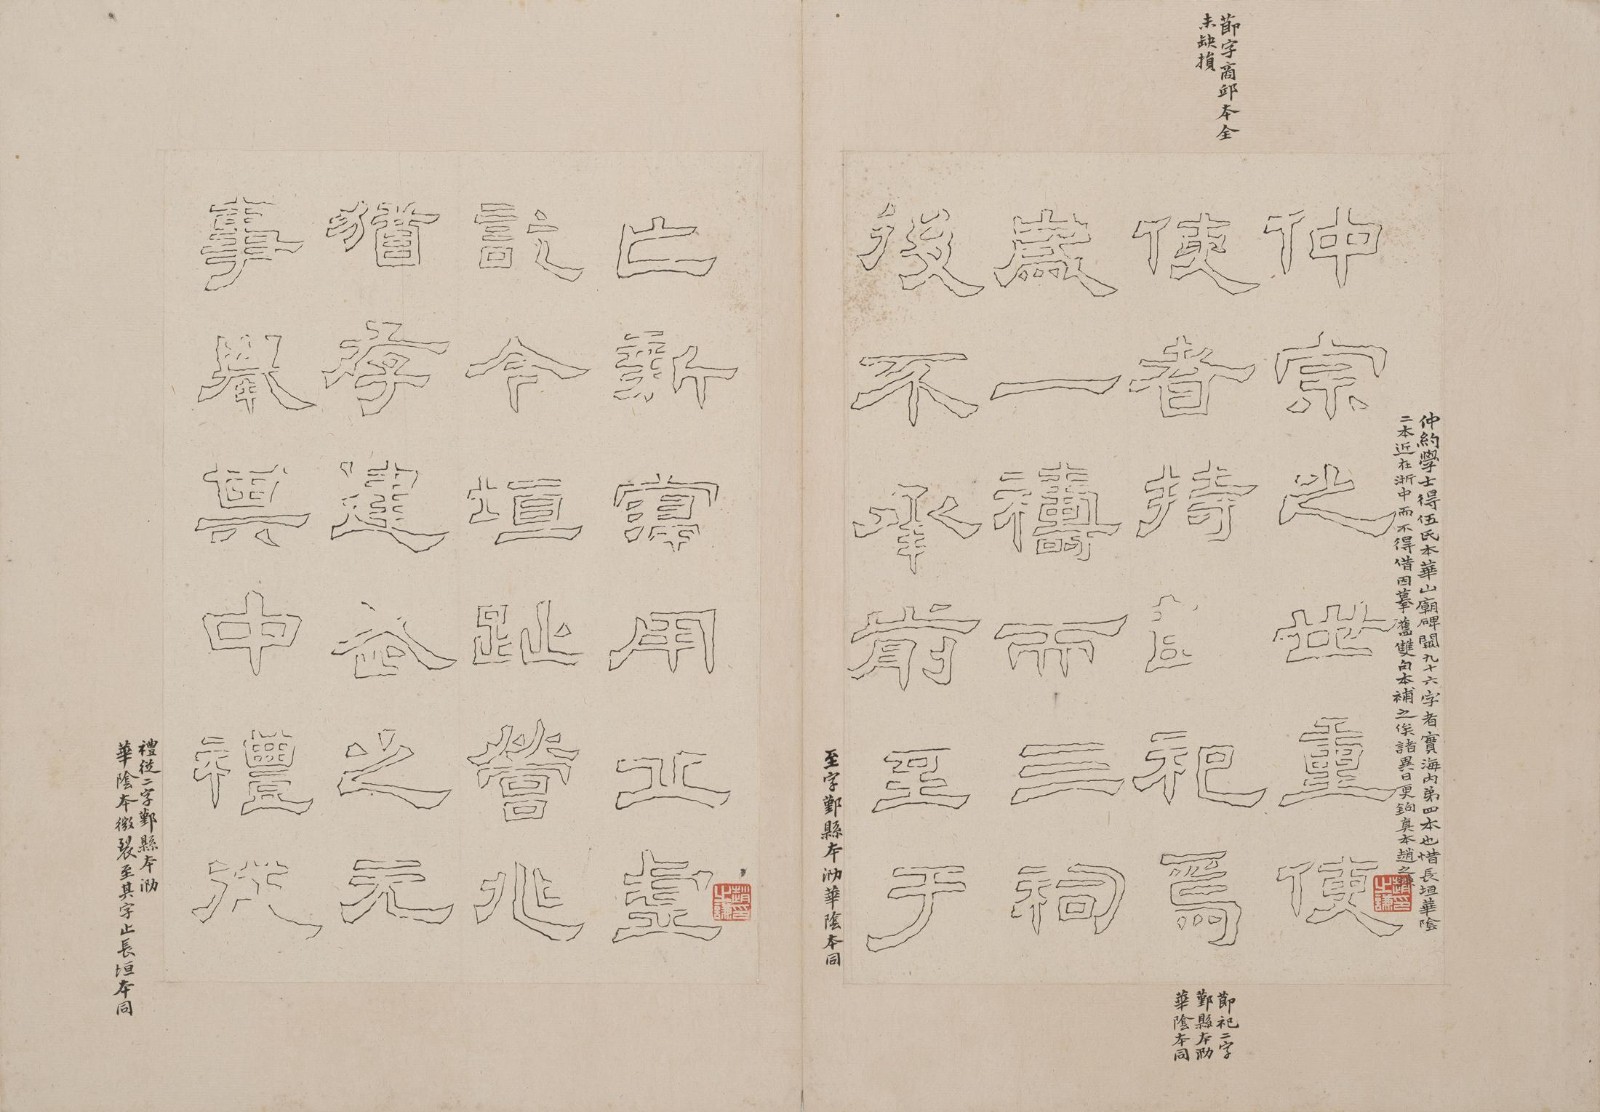 節字商邱本全
未缺損
仲約學士得伍氏本華山廟碑闕九十六字者實海內第四本也惜長垣華陰
二本近在浙中而不得借因摹舊雙句本補之俟諸異日更鉤真本趙之謙
趙印之謙
仲宗之世重使
使者持節祀焉
歲一禱而三祠
後不承前至于
節祀二字
鄞縣本泐
華陰本同
至字鄞縣本泐華陰本同
趙印之謙
亡新寖用丘虛
訖今垣趾營兆
猶存建武之元
事舉其中禮從
禮從二字鄞縣本泐
華陰本微裂至其字止長垣本同